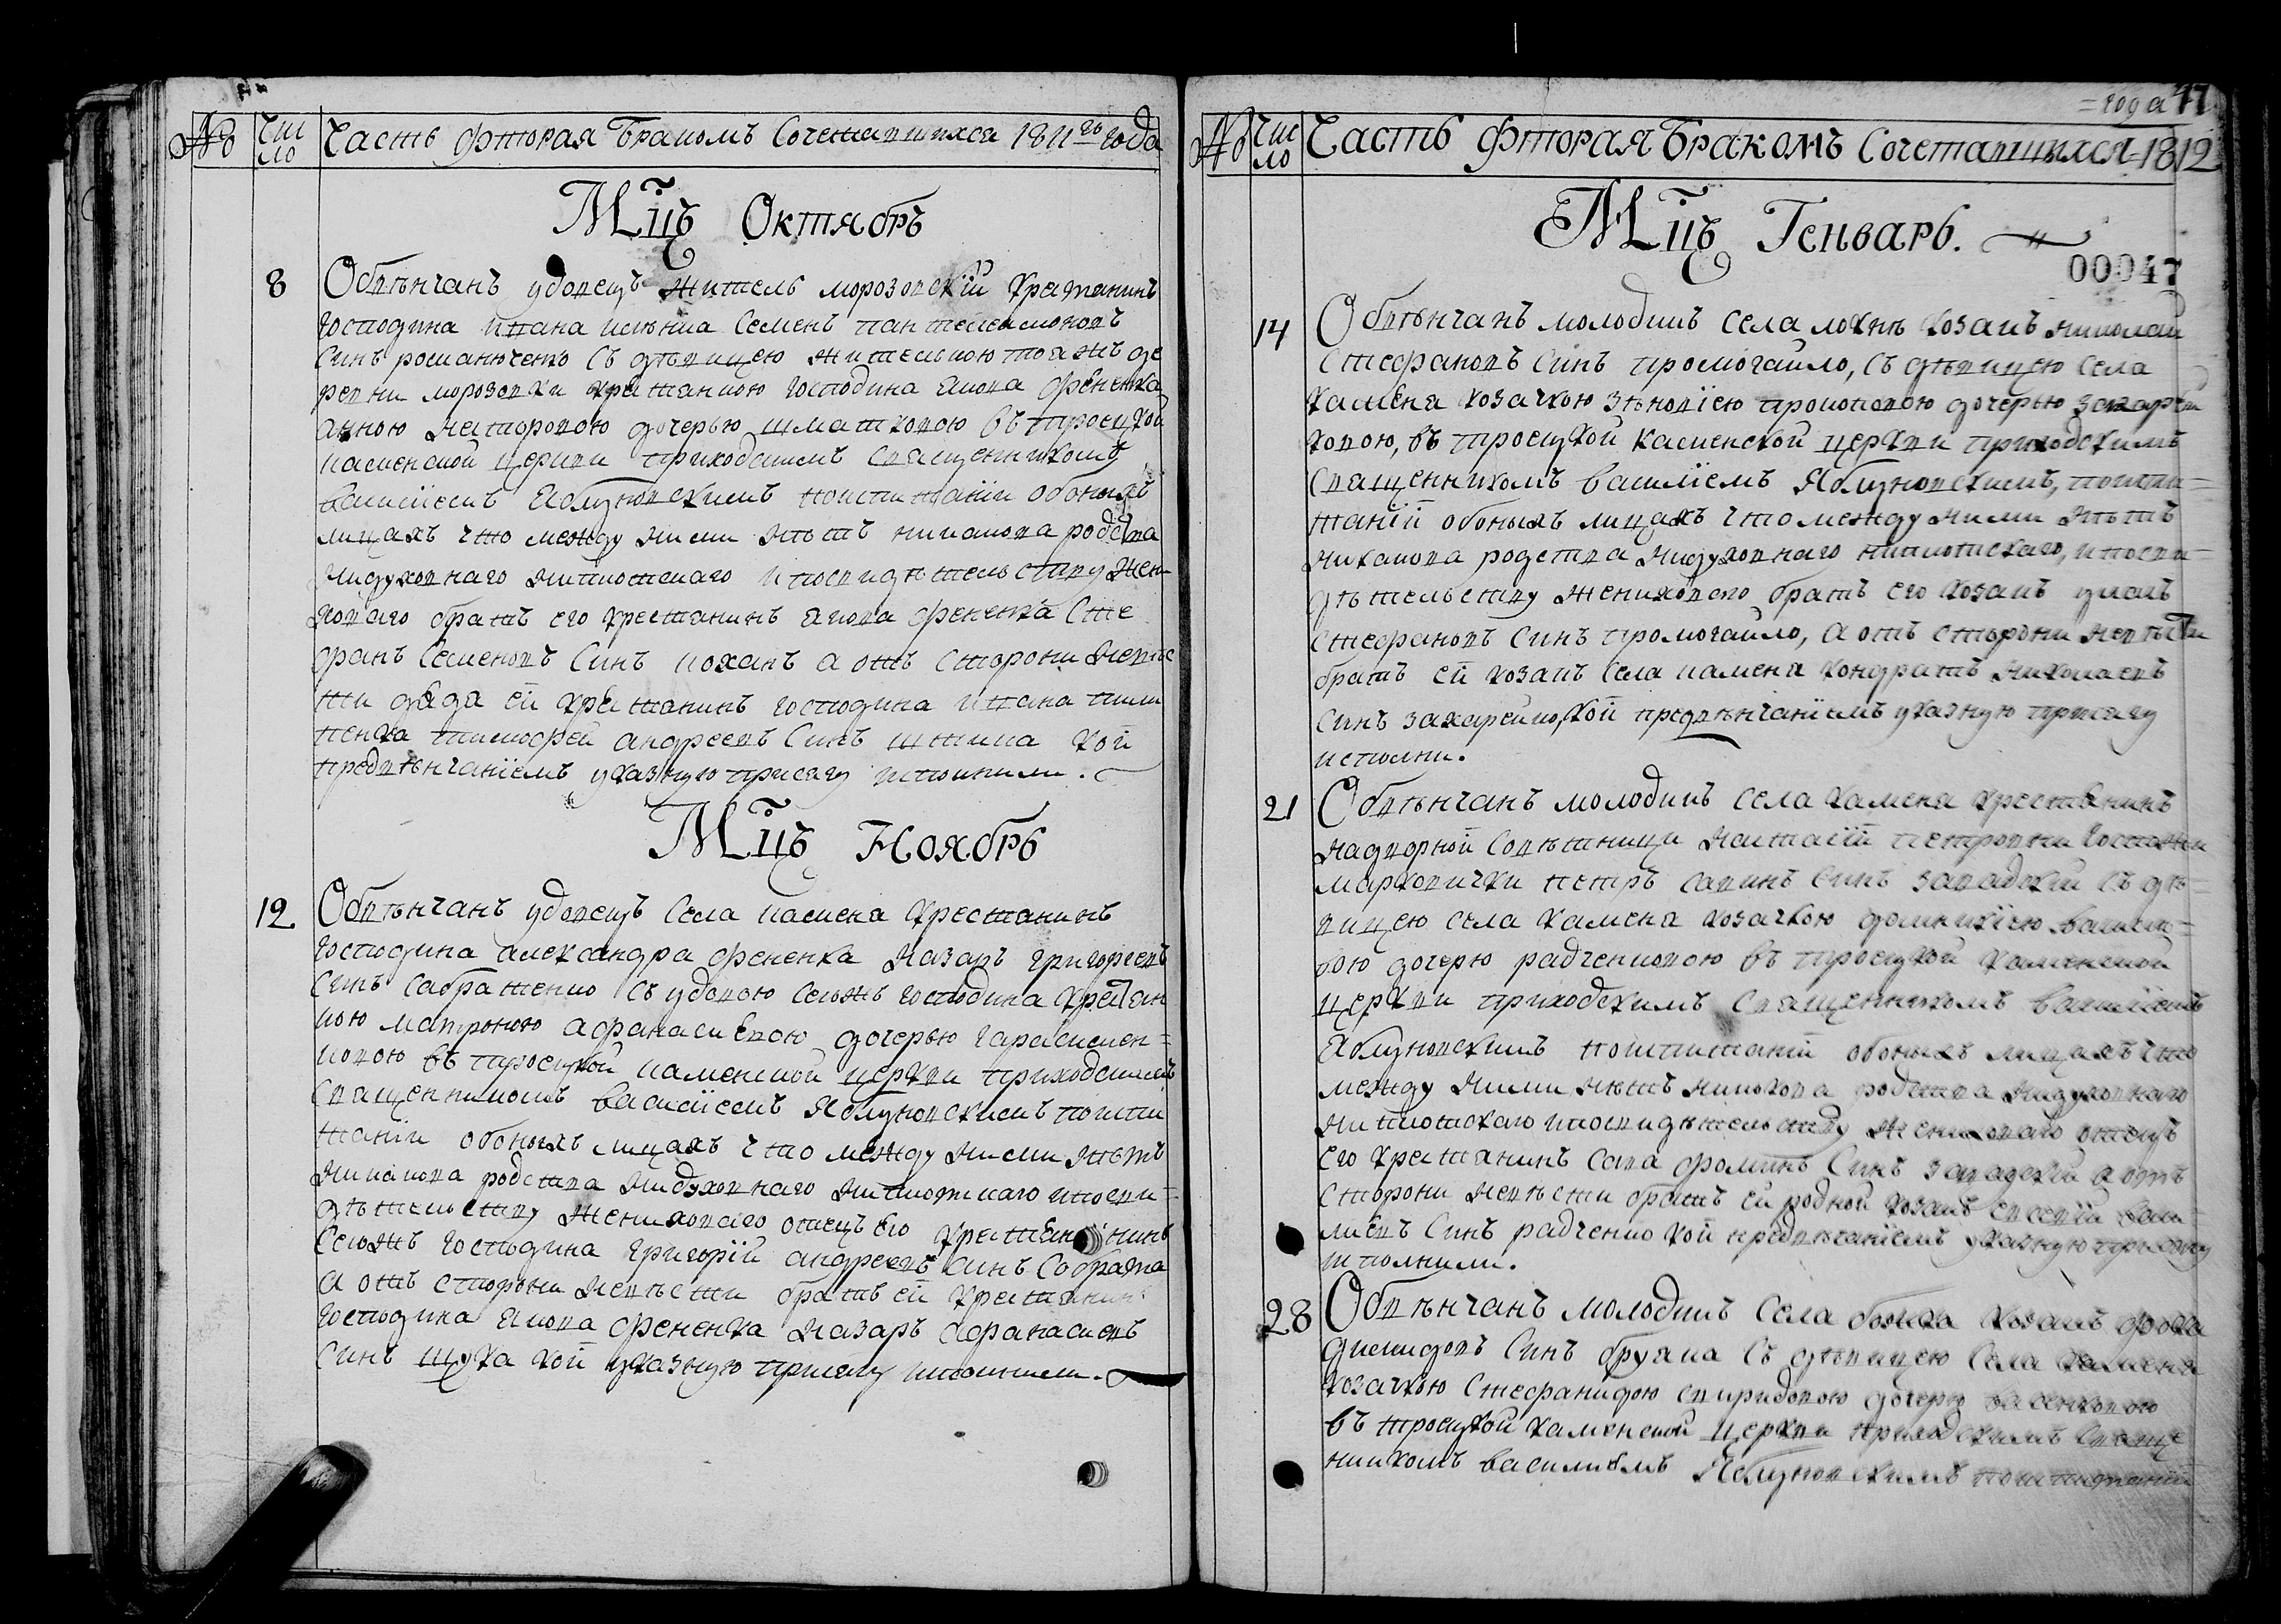 № Чис
ло
Часть фторая бракомъ Сочетавшихся 1811го года
Мцъ Октябръ
8 Обвѣнчанъ удовецъ житель морозовскій крестанинъ
господина ивана Семенъ пантелеимоновъ
Синъ романюченко Съ дѣвицею жителькою тоажъ де
ревни морозовки крестанкою господина якова фененка
анною неторовою дочерью шматковою въ троецкой
каменской церкви приходскимъ Священникомъ
василіемъ Яблуновскимъ поистязаніи обоныхъ
лицахъ что между ними нѣтъ никакова родства
нидуховнаго ниплотскаго ипосвидѣтельству жен
ховаго братъ его крестанинъ якова фененка Сте
фанъ Семеновъ Синъ коханъ а отъ сторони невѣс
ти дядя ей крестанинъ господина ивана
пенка тимофей андреевъ Синъ кой
предвѣнчаніемъ указную присягу исполнили.
Мцъ Ноябрь
12 Обвѣнчанъ удовецъ Села камена крестанинъ
господина александра фененка назаръ григориевъ
Синъ Сабраженко Съ удовою Сегожъ господина крестан
кою матроною афанасиевою дочерью гарасимен=
ковою въ троецкой каменской церкви приходскимъ
Священникомъ василіемъ Яблуновскимъ поистя
заніи обоныхъ лицахъ что между ними нѣтъ
никакова родства нидуховнаго ниплотскаго ипосви=
дѣтельству жениховаго отецъ его крестанинъ
Сегожъ господина григорій андреевъ Синъ Сабрата
а отъ сторони невѣсти братъ ей крестанинъ
господина якова фененка назаръ афанасиевъ
Синъ щука кой указную присягу исполнили.
=года 47
№ Чис
ло
Часть фторая Бракомъ Сочетавшихся=1812
Мцъ Генварь.
00047
14 Обвѣнчанъ молодикъ села козакъ николай
Стефановъ Синъ промогайло, Съ дѣвицею Села
камена козачкою зѣновіею прокоповою дочерью захарей
ковою, въ троецкой каменской церкви приходскимъ
Священникомъ василіемъ Яблуновскимъ, поистя=
заній обоныхъ лицахъ что между ними нѣтъ
никакова родства нидуховнаго ниплотскаго, ипосви=
дѣтельству жениховаго братъ его козакъ улахъ
Стефановъ Синъ промогайло, а отъ сторони невѣсти
братъ ей козакъ Села камена кондратъ николаевъ
Синъ захарейко, кой предвѣнчаніемъ указную присягу
исполни.
21 Обвѣнчанъ молодикъ Села камена крестанинъ
надворной Совѣтници настасій петровни госпожи
марковички петръ савинъ Синъ западскій Съ дѣ=
вицею села камена козачкою домникіею василе=
вою дочерю радченковою въ троецкой каменской
церкви приходскимъ Священникомъ василіемъ
Яблуновскимъ поистязаній обоныхъ лицахъ что
между ними нѣтъ никакова родства нидуховнаго
ниплотскаго ипосвидѣтельству жениховаго отецъ
его крестанинъ Сава фоминъ Синъ западскій а отъ
Сторони невѣсти братъ ей родной козакъ евсевій васи=
лиевъ Синъ радченко кой предвѣчаніемъ указную присягу
исполнили.
28 Обвѣнчанъ молодикъ Села козакъ фока
Синъ Съ дѣвицею Села камена
козачкою Стефанидою спиридовою дочерю
въ троецкой каменской церкви приходскимъ Свяще
никомъ василиемъ Яблуновскимъ поистязаній